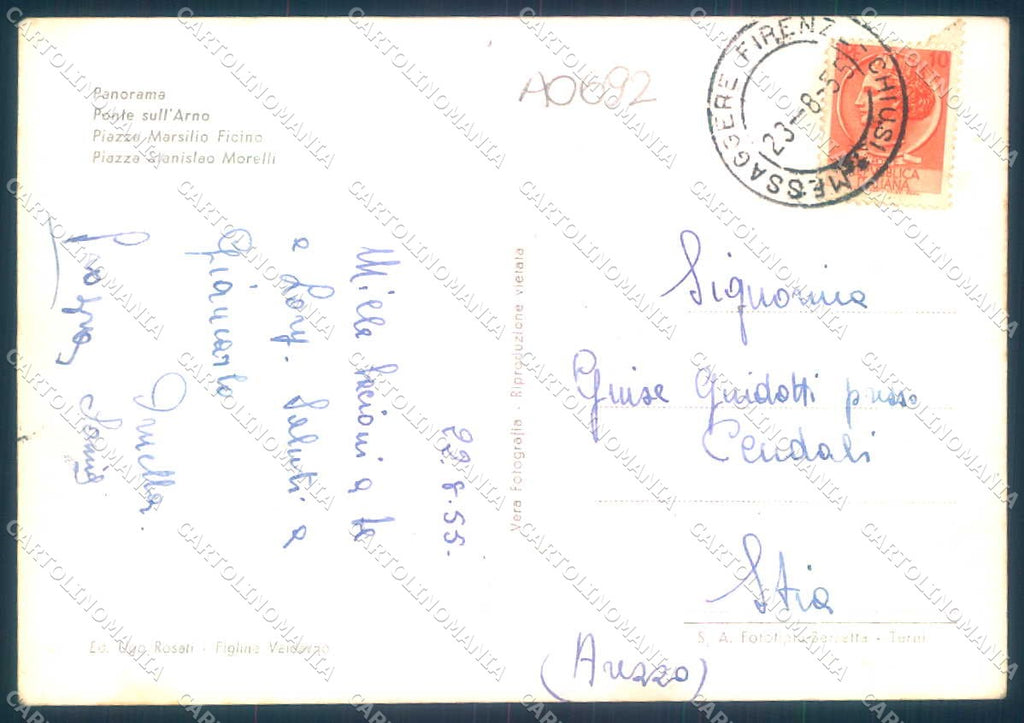 Panorama
Ponte sull'Arno
Piazza Marsilio Ficino
Piazza Stanislao Morelli
A0692
MESSAGGERE FIRENZE - CHIUSI
23-8-55
10
REPUBBLICA
ITALIANA
22.8.55.
Mille bacioni a te
e Lory. Saluti a
Giancarlo
Ornella.
Vera Fotografia - Riproduzione vietata
Signorina
Guise Guidotti presso
Cendali
Stia
(Arezzo)
Ed. Ugo Rosati - Figline Valdarno
S. A. Fototipia Berretta - Terni
CARTOLINOMANIA